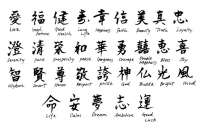 愛 福 健 寿 幸 信 美 真 忠
Love Good Luck Good Health Long Life Happiness Faith Beauty Truth Loyalty
澄 清 榮 和 華 勇 囍 恵 喜
Serenity Pure Prosperity Peace Courage Double Happiness Bless Joy
智 賢 尊 敬 誇 神 仏 光 風
Wisdom Smart Honor Respect Pride God Buddha Bright Wind
命 安 夢 志 運
Life Calm Dream Ambition Good Luck